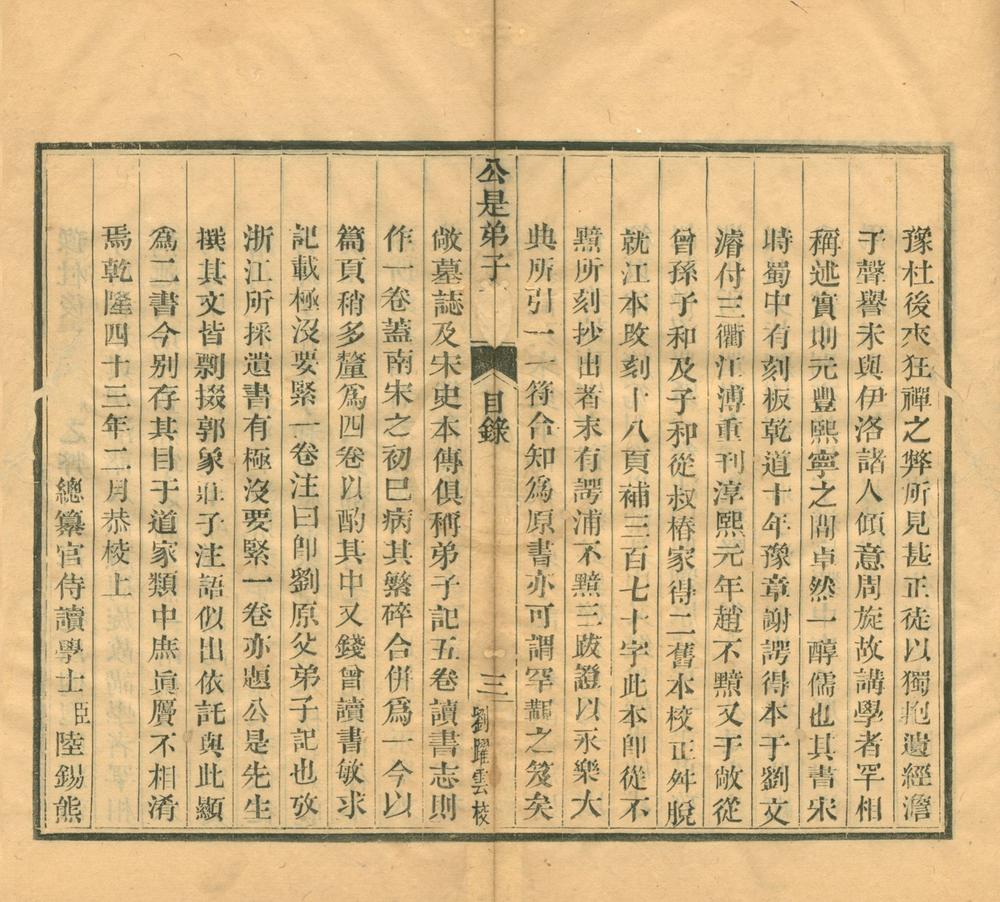 豫杜後來狂禪之弊所見甚正徒以獨抱遺經澹
于聲譽未與伊洛諸人傾意周旋故講學者罕相
稱述實則元豐熙寧之間卓然一醇儒也其書宋
時蜀中有刻板乾道十年豫章謝諤得本于劉文
濬付三衢江溥重刊淳熙元年趙不黯又于敞從
曾孫子和及子和從叔椿家得二舊本校正舛脫
就江本改刻十八頁補三百七十字此本卽從不
黯所刻抄出者末有諤浦不黯三跋證以永樂大
典所引一一符合知爲原書亦可謂罕覯之笈矣
公是弟子 目錄 三 劉躍雲校
敞墓誌及宋史本傳俱稱弟子記五卷讀書志則
作一卷蓋南宋之初已病其繁碎合併爲一今以
篇頁稍多釐爲四卷以酌其中又錢曾讀書敏求
記載極沒要緊一卷注曰卽劉原父弟子記也攷
浙江所採遺書有極沒要緊一卷亦題公是先生
撰其文皆剽掇郭象莊子注語似出依託與此顯
爲二書今别存其目于道家類中庶眞贗不相淆
焉乾隆四十三年二月恭校上
總纂官侍讀學士臣陸錫熊